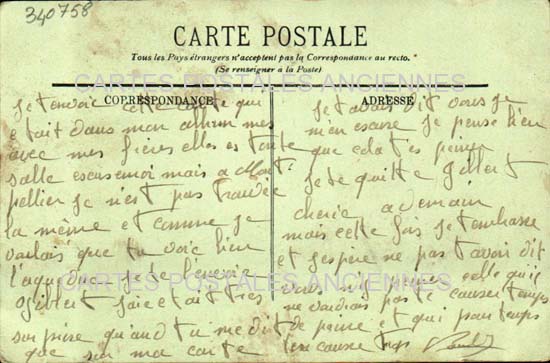 340758
CARTE POSTALE
Tous les Pays étrangers n'acceptent pas la Correspondance au recto.
(Se renseigner à la Poste)
CARTES POSTALES ANCIENNES
CORRESPONDANCE
Je tenvoie cette carte qui
etait dans mon album mes
avec mes frères elles es toute
salle escuse moi mais a Mont
pellier je n'est pas trouvée
la même et comme je
voulais que tu voie bien
l'aqueduc je te l'envoie
Gilbert j'aie etait tres
surprise quand tu me dit
que sur ma carte
ADRESSE
Je t'avais dit vous je
m'en escuse je pense bien
que cela t'es
Je te quitte Gilbert
cherie a demain
mais cette fois je t'embrasse
et j'espère ne pas t'avoir dit
vous celle qui
ne voudrais pas te causer
de peine et qui pour temps
t'en cause trop
CARTES POSTALES ANCIENNES